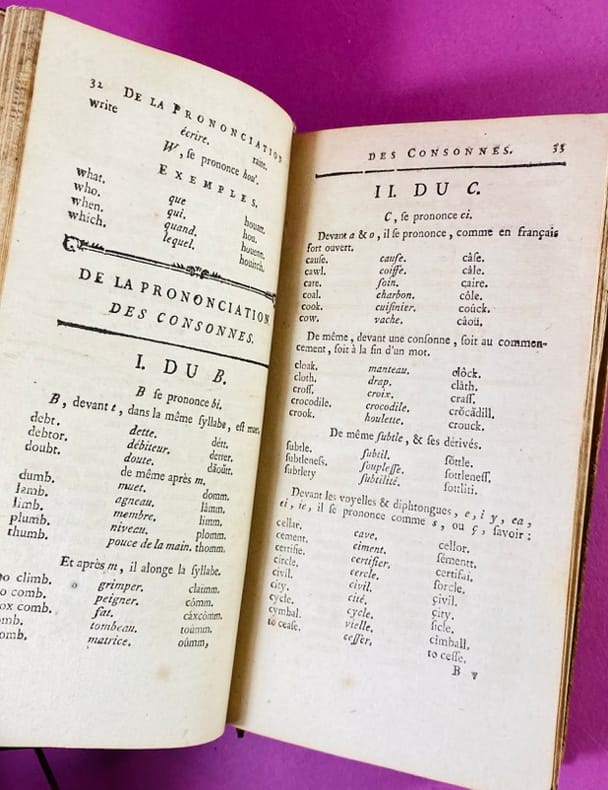 32 DE LA PRONONCIATION
write écrire. raite.
W, ſe prononce hou.
EXEMPLES.
what. que houatt.
who. qui. hou.
when. quand. houenn.
which. lequel. houitch.
DE LA PRONONCIATION
DES CONSONNES.
I. DU B.
B ſe prononce bi.
B, devant t, dans la même ſyllabe, eſt muet.
debt. dette. détt.
debtor. débiteur. detter.
doubt. doute. dăoûtt.
de même après m.
dumb. muet. domm.
lamb. agneau. lâmm.
limb. membre. limm.
plumb. niveau. plomm.
thumb. pouce de la main. thomm.
Et après m, il alonge la ſyllabe.
climb. grimper. claimm.
comb. peigner. cômm.
ox comb. fat. cáxcómm.
omb. tombeau. toûmm.
omb. matrice. oûmm,
DES CONSONNES. 33
II. DU C.
C, ſe prononce ci.
Devant a & o, il ſe prononce, comme en français
fort ouvert.
cauſe. cauſe. câſe.
cawl. coiffe. câle.
care. ſoin. caire.
coal. charbon. côle.
cook. cuiſinier. coûck.
cow. vache. càoü.
De même, devant une conſonne, ſoit au commen-
cement, ſoit à la fin d'un mot.
cloak. manteau. clôck.
cloth. drap. clăth.
croſſ. croix. craſſ.
crocodile. crocodile. crŏcădill.
crook. houlette. crouck.
De même ſubtle, & ſes dérivés.
ſubtle. ſubtil. ſŏttle.
ſubtleneſs. ſoupleſſe. ſottleneſſ.
ſubtlety ſubtilité. ſottliti.
Devant les voyelles & diphtongues, e, i y, ea,
ei, ie, il ſe prononce comme s, ou ç, ſavoir :
cellar. cave. cellor.
cement. ciment. ſémentt.
certifie. certifier. certifai.
circle. cercle. ſorcle.
civil. civil. çivil.
city. cité. çity.
cycle. cycle. ſicle.
cymbal. vielle. cimball.
to ceaſe. ceſſer, to ceſſe.
B v